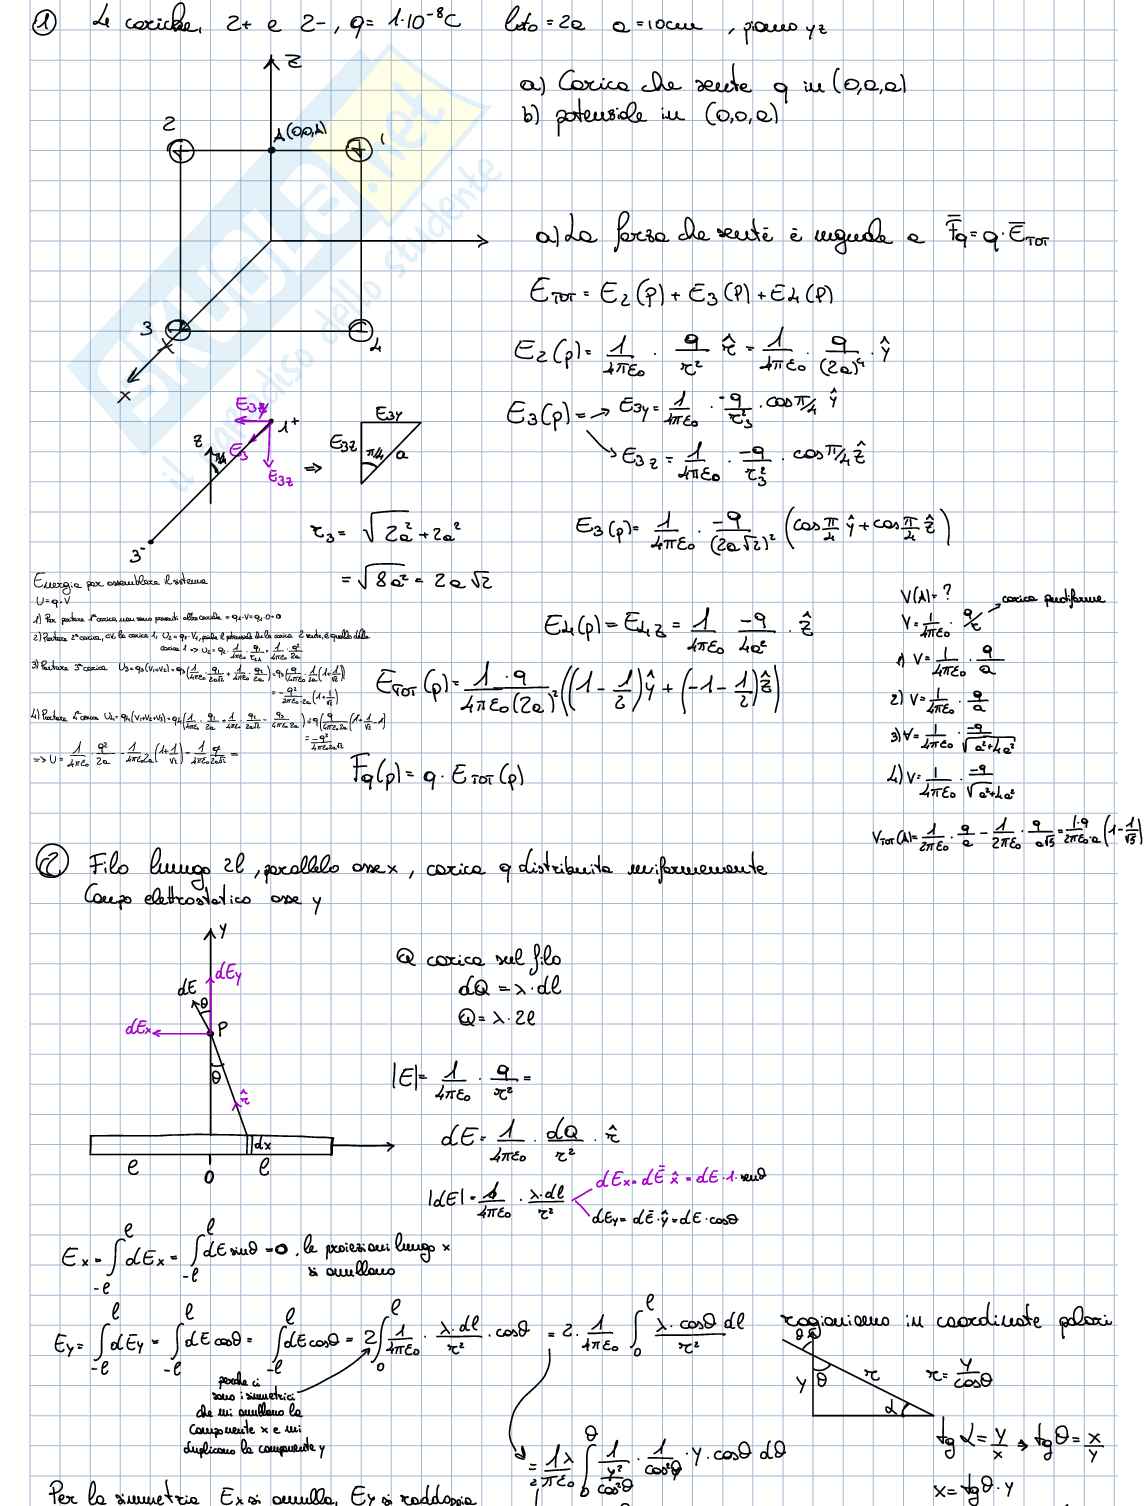 ① 4 cariche, 2+ e 2-, q= 1·10⁻⁸C lato = 2a a = 10cm , piano yz
a) Carica che sente q in (0,a,a)
b) potenziale in (0,0,a)
z
2
A(0,0,A)
1
3
4
x
a) La forza che sente è uguale a F̄q = q · Ē_TOT
E_TOT = E2(P) + E3(P) + E4(P)
E2(p) = 1/4πε0 · q/r² r̂ = 1/4πε0 · q/(2a)² · ŷ
E3(p) = → E3y = 1/4πε0 · -q/r3² · cos π/4 ŷ
→ E3z = 1/4πε0 · -q/r3² · cos π/4 ẑ
E3y
E3
E3z
1⁺
z
π/4
⇒
E3y
E3z
π/4
a
3⁻
r3 = √2a² + 2a²
= √8a² = 2a√2
E3(p) = 1/4πε0 · -q/(2a√2)² (cos π/4 ŷ + cos π/4 ẑ)
E4(p) = E4z = 1/4πε0 -q/4a² · ẑ
E_TOT(p) = 1·q/4πε0(2a)² ((1 - 1/2)ŷ + (-1 - 1/2)ẑ)
Fq(p) = q · E_TOT(p)
Energia per assemblare il sistema
U = q·V
1) Per portare 1ª carica non sono presenti altre cariche = q1·V = q1·0 = 0
2) Portare 2ª carica, c'è la carica 1, U2 = q2·V1, perché il potenziale che la carica 2 sente, è quello della
carica 1 → U2 = q2 · 1/4πε0 · q1/r2,1 = 1/4πε0 · q²/2a
3) Portare 3ª carica U3 = q3(V1+V2) = q3(1/4πε0 · q1/2a√2 + 1/4πε0 · q2/2a) = q3(q/4πε0 · 1/2a (1+1/√2))
= -q²/4πε0·2a (1+1/√2)
4) Portare 4ª carica U4 = q4(V1+V2+V3) = q4(1/4πε0 · q1/2a + 1/4πε0 · q2/2a√2 - q3/4πε0 2a) = q(q/4πε0 2a (1+1/√2 -1)
= -q²/4πε0 2a√2
=> U = 1/4πε0 · q²/2a - 1/4πε0 2a (1+1/√2) - 1/4πε0 q²/2a√2 =
V(A) = ?
V = 1/4πε0 · q/r → carica puntiforme
1) V = 1/4πε0 · q/a
2) V = 1/4πε0 · q/a
3) V = 1/4πε0 · -q/√a²+4a²
4) V = 1/4πε0 · -q/√a²+4a²
V_TOT(A) = 1/2πε0 · q/a - 1/2πε0 · q/a√5 = 1·q/2πε0·a (1 - 1/√5)
② Filo lungo 2l, parallelo asse x, carica q distribuita uniformemente
Campo elettrostatico asse y
y
dEy
dE
θ
dEx
P
θ
r̂
dx
l
0
l
Q carica sul filo
dQ = λ·dl
Q = λ·2l
|E| = 1/4πε0 · q/r² =
dE = 1/4πε0 · dQ/r² · r̂
|dE| = 1/4πε0 · λ·dl/r²
dEx = dĒ·x̂ = dE·1·senθ
dEy = dĒ·ŷ = dE·cosθ
Ex = ∫-l^l dEx = ∫-l^l dE sinθ = 0, le proiezioni lungo x
si annullano
Ey = ∫-l^l dEy = ∫-l^l dE cosθ = ∫-l^l dE cosθ = 2∫0^l 1/4πε0 · λ·dl/r² · cosθ = 2· 1/4πε0 ∫0^l λ·cosθ dl/r²
perché ci
sono i simmetrici
che mi annullano la
componente x e mi
duplicano la componente y
ragioniamo in coordinate polari
θ
y
θ
r
α
r = y/cosθ
tg α = y/x ⇒ tg θ = x/y
x = tgθ · y
= 1λ/2πε0 ∫0^θ 1/(y²/cos²θ) · 1/cos²θ · y · cosθ dθ
Per la simmetria Ex si annulla, Ey si raddoppia
SKUOLA.net
il paradiso dello studente